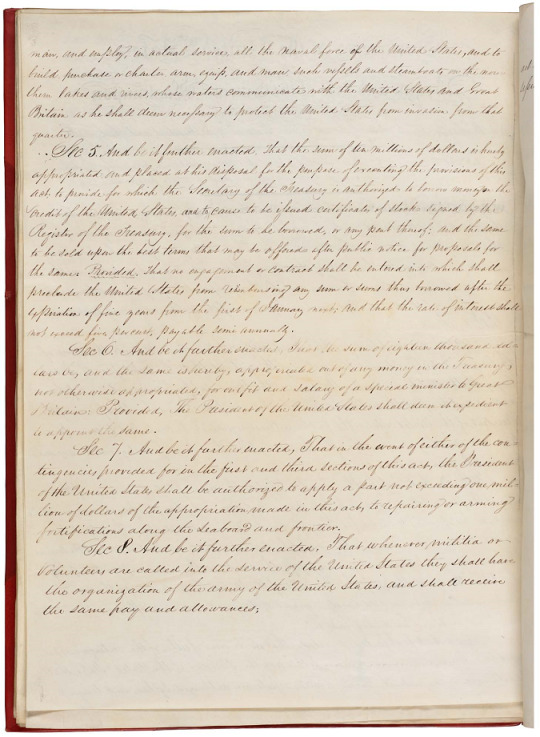 man, and employ, in actual service, all the naval force of the United States, and to
build, purchase or charter, arm, equip, and man such vessels and steamboats on the nor=
thern lakes and rivers, whose waters communicate with the United States and Great
Britain, as he shall deem necessary to protect the United States from invasion from that
quarter.
Sec 5. And be it further enacted, That the sum of ten millions of dollars is hereby
appropriated and placed at his disposal for the purpose of executing the provisions of this
act, to provide for which the Secretary of the Treasury is authorized to borrow money on the
credit of the United States, and to cause to be issued certificates of stock signed by the
Register of the Treasury, for the sum to be borrowed, or any part thereof; and the same
to be sold upon the best terms that may be offered after public notice for proposals for
the same: Provided, That no engagement or contract shall be entered into which shall
preclude the United States from reimbursing any sum or sums thus borrowed after the
expiration of five years from the first of January next; and that the rate of interest shall
not exceed five per cent, payable semi annually.
Sec 6. And be it further enacted, That the sum of eighteen thousand dol=
lars be, and the same is hereby, appropriated out of any money in the Treasury,
not otherwise appropriated, for outfit and salary of a special minister to Great
Britain: Provided, The President of the United States shall deem it expedient
to appoint the same.
Sec 7. And be it further enacted, That in the event of either of the con=
tingencies provided for in the first and third sections of this act, the President
of the United States shall be authorized to apply a part not exceeding one mil=
lion of dollars of the appropriation made in this act, to repairing or arming
fortifications along the seaboard and frontier.
Sec 8. And be it further enacted, That whenever militia or
volunteers are called into the service of the United States they shall have
the organization of the army of the United States, and shall receive
the same pay and allowances;